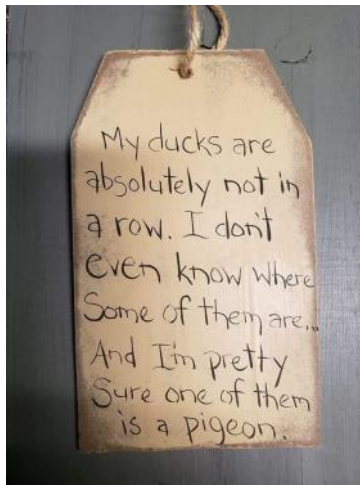 My ducks are
absolutely not in
a row. I don't
even know where
Some of them are...
And I'm pretty
Sure one of them
is a pigeon.